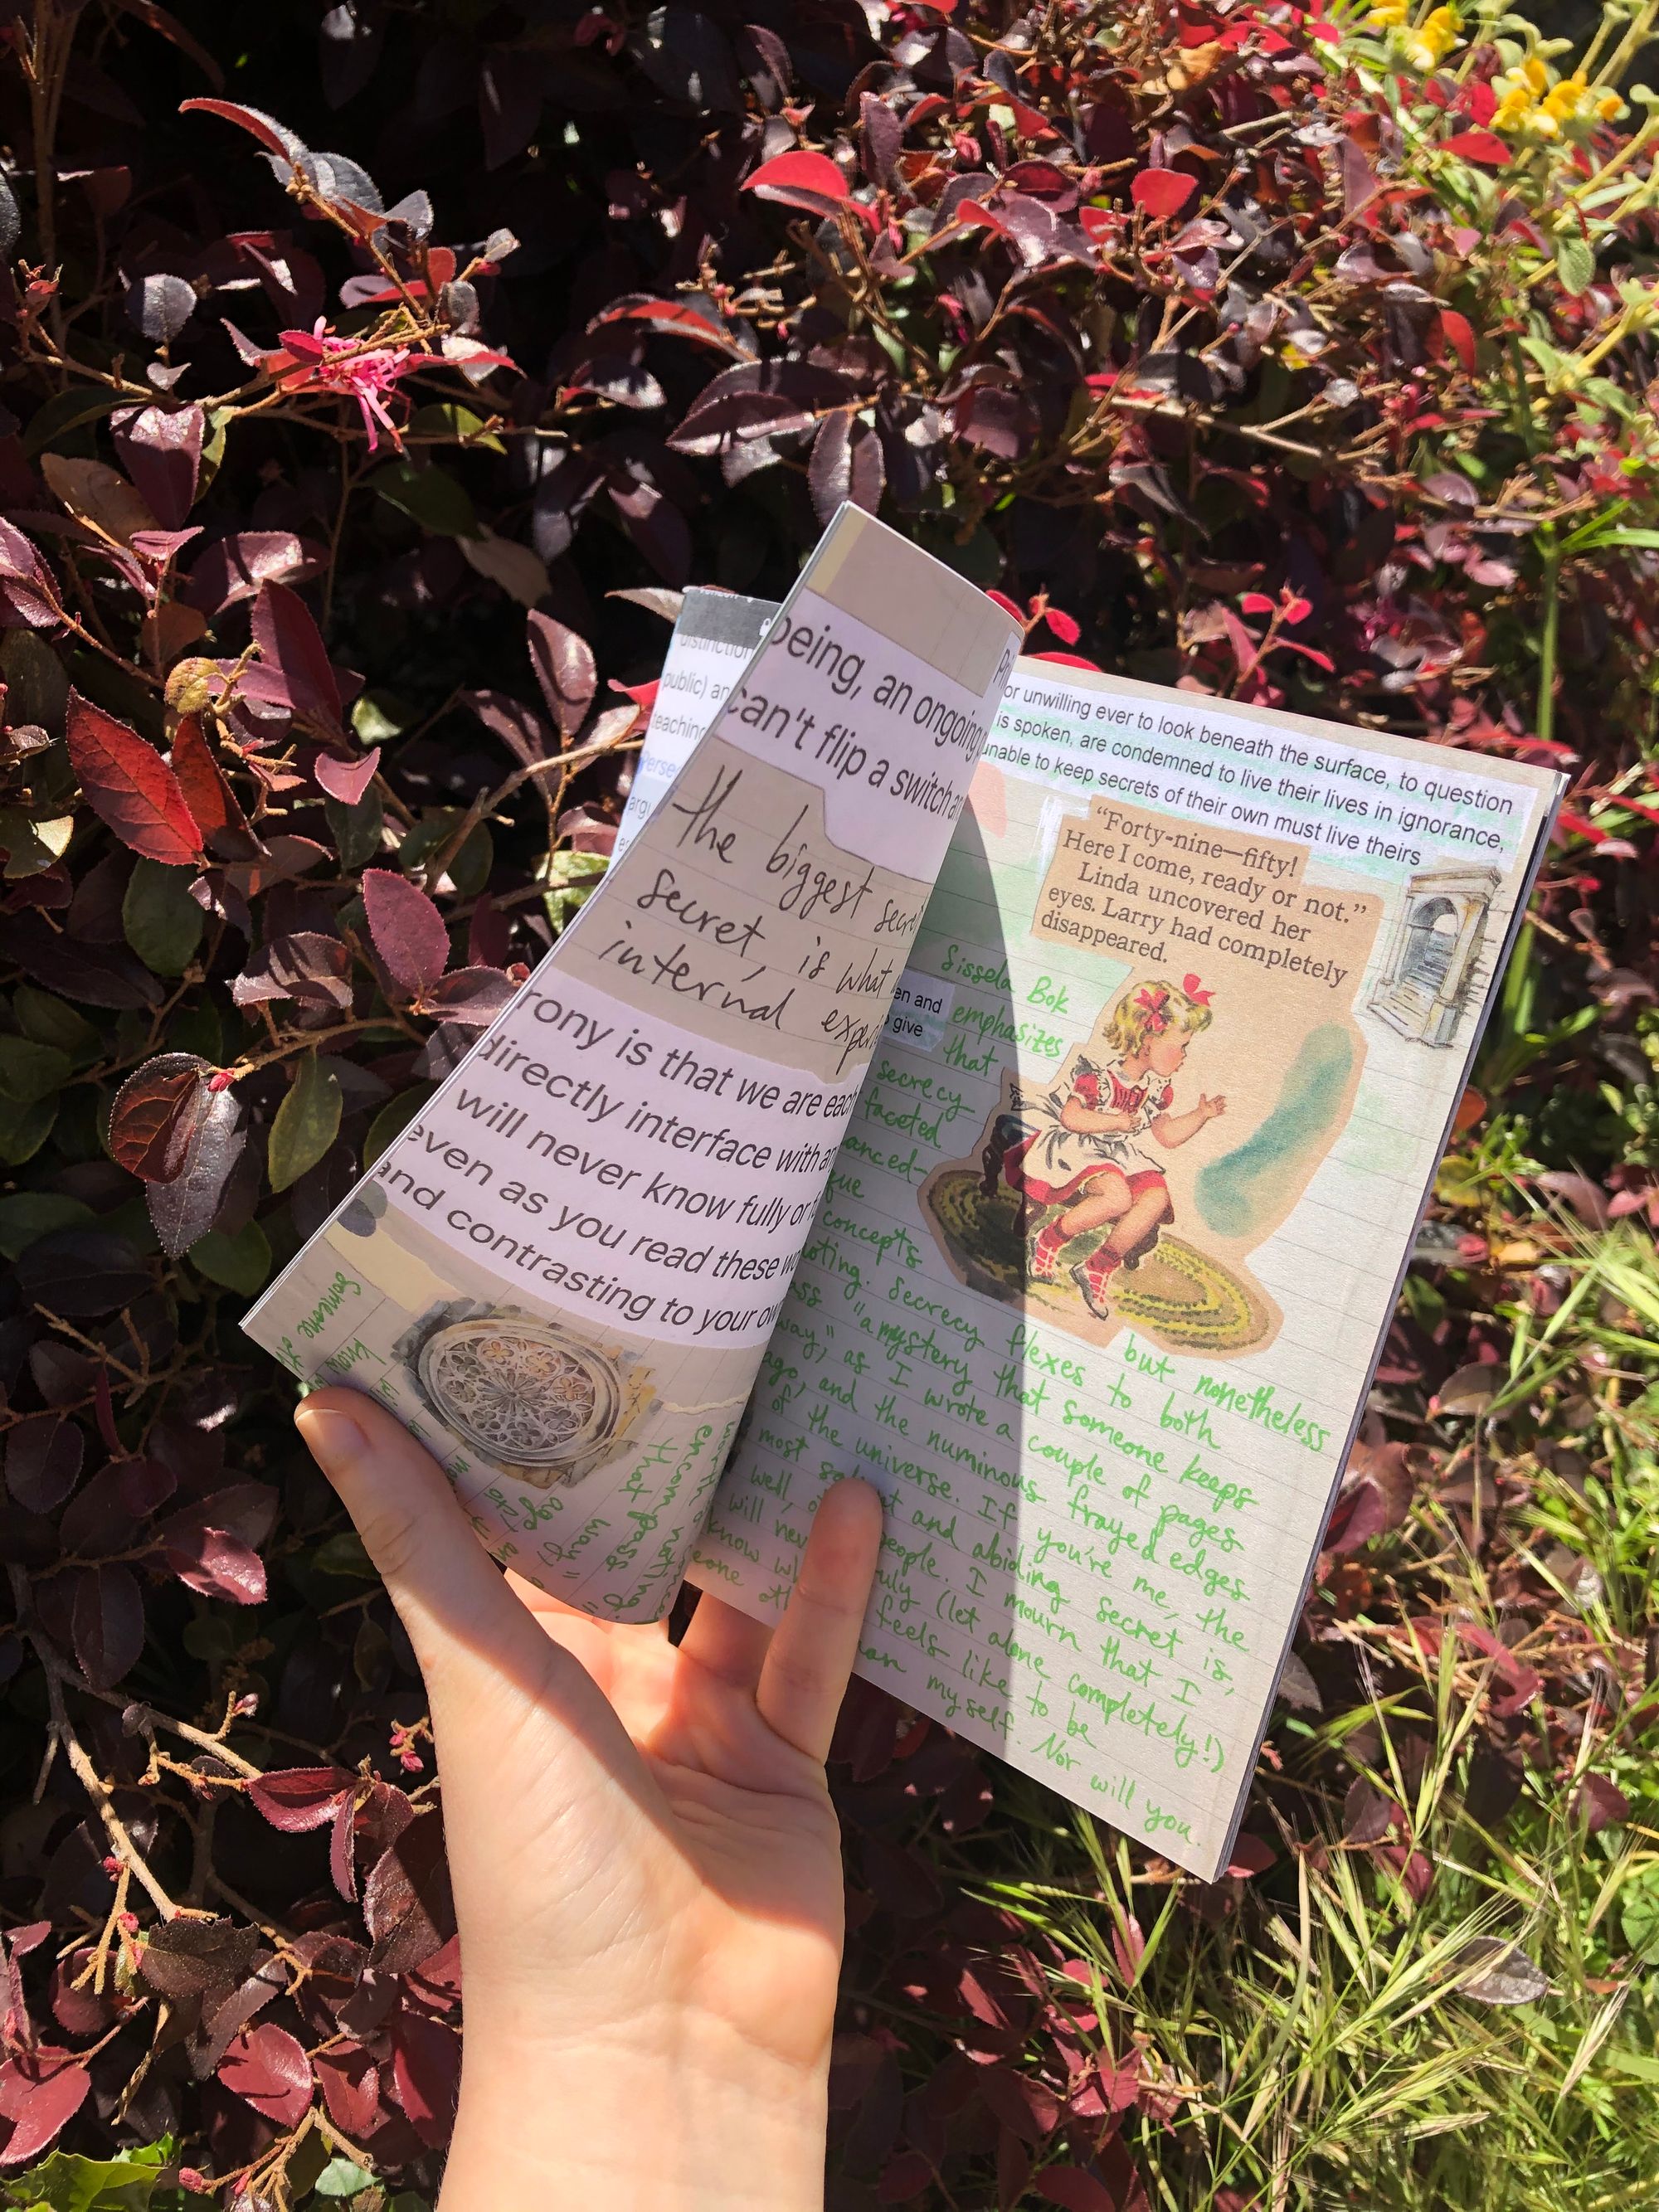 distinction
public) an
teaching
Perse
argu
being, an ongoing
can't flip a switch
the biggest
secret, is what
internal
rony is that we are each
directly interface with
will never know fully or
even as you read these
and contrasting to your
Someone
know
encompass
that
way"
ago,
or unwilling ever to look beneath the surface, to question
is spoken, are condemned to live their lives in ignorance,
unable to keep secrets of their own must live theirs
"Forty-nine—fifty!
Here I come, ready or not."
Linda uncovered her
eyes. Larry had completely
disappeared.
en and
give
Sissela Bok
emphasizes
that
secrecy
faceted
anced—
concepts
but nonetheless
oting. Secrecy flexes to both
"a mystery that someone keeps
way", as I wrote a couple of pages
ago, and the numinous frayed edges
of the universe. If you're me, the
most and abiding secret is,
well, people. I mourn that I
will never truly (let alone completely!)
know feels like to be
myself. Nor will you.